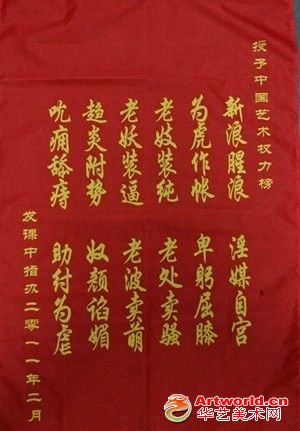 授予中国艺术权力榜
新浪腥浪 淫媒自宫
为虎作帐 卑躬屈膝
老妓装纯 老处卖骚
老妖装逼 老波卖萌
趋炎附势 奴颜谄媚
吮痈舐痔 助纣为虐
发课中指办二零一一年二月
Artworld.cn
华艺美术网